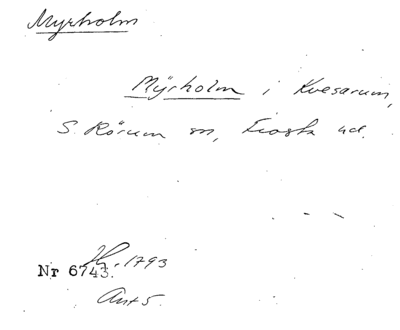 Myrholm
Myrholm i Kvesarum,
S. Rörum sn, Frosta hd.
1793
Nr 6743.
Ant 5.